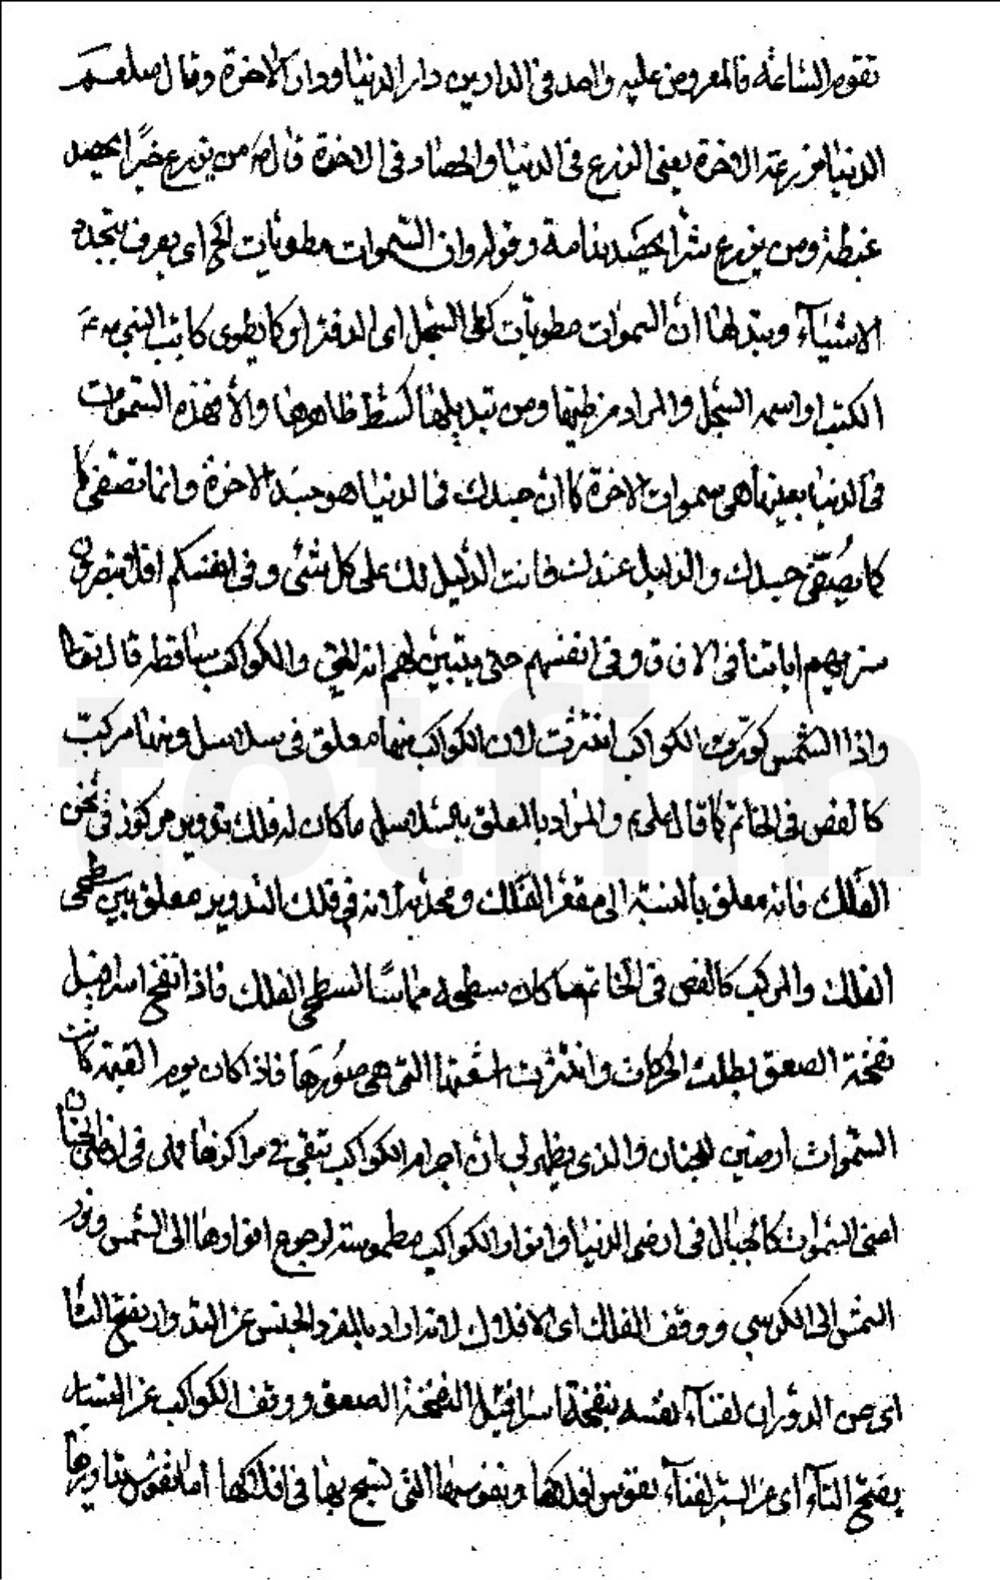 تقوم الساعة فالمعروض عليه واحد في الدارين دار الدنيا ودار الاخرة وقال صلعم
الدنيا مزرعة الاخرة يعني الزرع في الدنيا والحصاد في الاخرة قال من يزرع خيرا يحصد
غبطة ومن يزرع شرا يحصد ندامة وقوله وان السموات مطويات الخ اي يعرف بتجدد
الاشياء وتبدلها ان السموات مطويات كطي السجل اي الدفتر او كما يطوي كاتب النبي
الكتب او اسمه السجل والمراد من طيها ومن تبديلها كشط ظاهرها والا فهذه السموات
في الدنيا بعينها هي سموات الاخرة كما ان جسدك في الدنيا هو جسد الاخرة وانما تصفى
كما يصفى جسدك والدليل عندك فانت الدليل لك على كل شئ وفي انفسكم افلا تبصرون
سنريهم اياتنا في الافاق وفي انفسهم حتى يتبين لهم انه الحق والكواكب ساقطة قال تعالى
واذا الشمس كورت الكواكب انتثرت لان الكواكب منها معلق في سلاسل ومنها مركب
كالفص في الخاتم كما قال علي ع والمراد بالمعلق بالسلاسل ما كان له فلك تدوير مركوز في ثخن
الفلك فانه معلق بالنسبة الى مقعر الفلك ومحدبه لانه في فلك التدوير معلق بين سطحي
الفلك والمركب كالفص في الخاتم ما كان سطحه مماسا لسطحي الفلك فاذا نفخ اسرافيل
نفخة الصعق بطلت الحركات وانتثرت اشعتها التي هي صورها فاذا كان يوم القيمة كانت
السموات ارضين للجنان والذي يظهر لي ان اجرام الكواكب تبقى في مراكزها وهي في اراضي الجنان
اعني السموات كالجبال في ارض الدنيا وانوار الكواكب مطموسة لرجوع انوارها الى الشمس ونور
الشمس الى الكرسي ووقف الفلك اي الافلاك لانه اراد بالمفرد الجنس عن التدوار بفتح التاء
اي عن الدوران لفناء نفسه بنفخة اسرافيل النفخة الصعق ووقف الكواكب عن التسيار
بفتح التاء اي عن السير لفناء نفوس افلاكها ونفوسها التي تسبح بها في افلاكها اما نفوس تداويرها